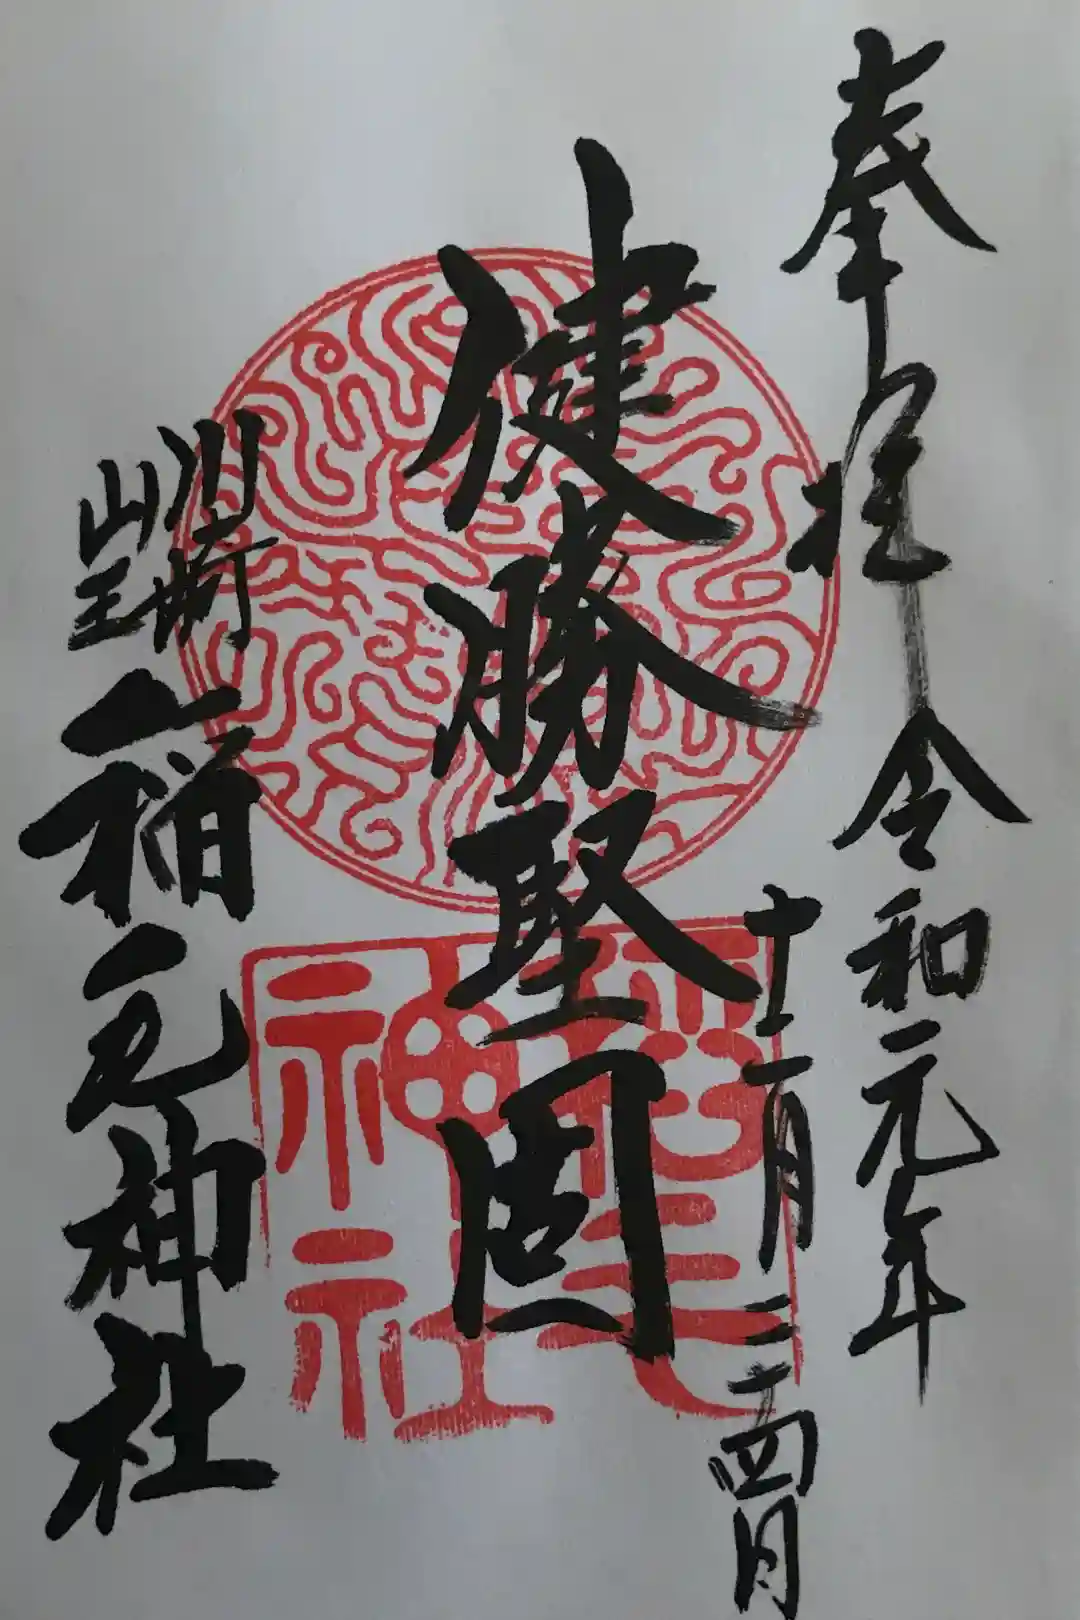 奉拝
令和元年
十二月二十四日
健勝堅固
川崎
山王
稲毛神社
稲毛
神社